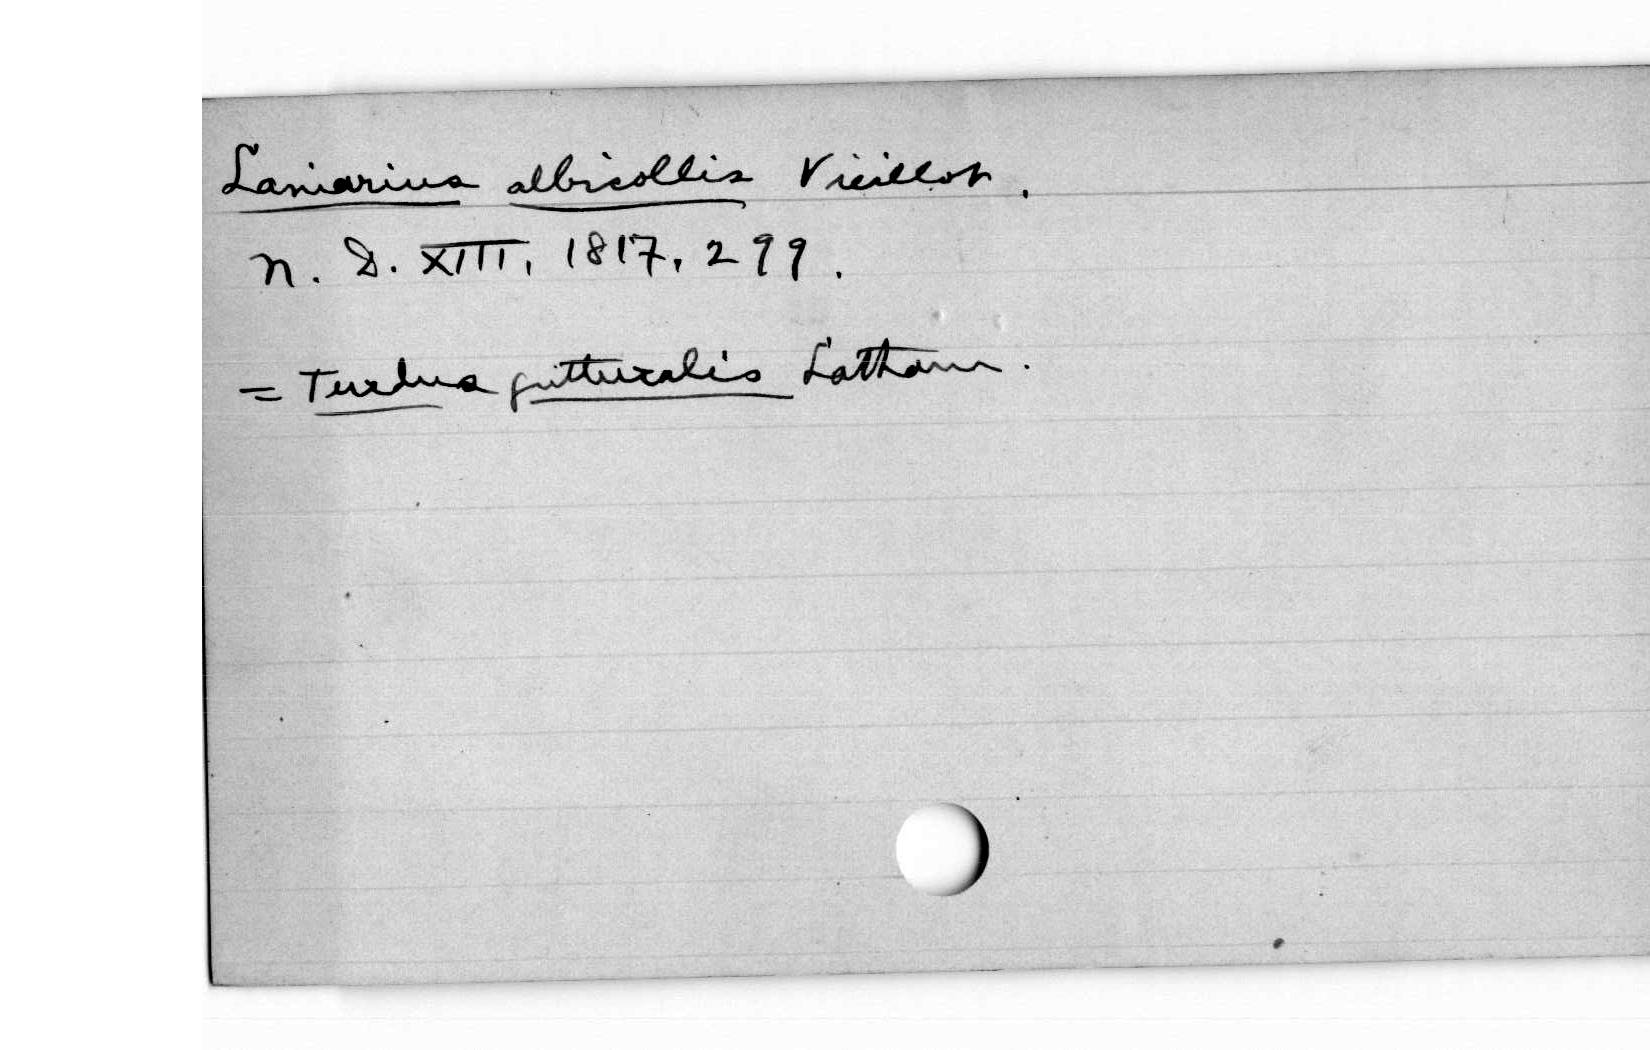 Laniarius albicollis Vieillot.
N. D. XIII, 1817, 299.
= Turdus gutturalis Latham.